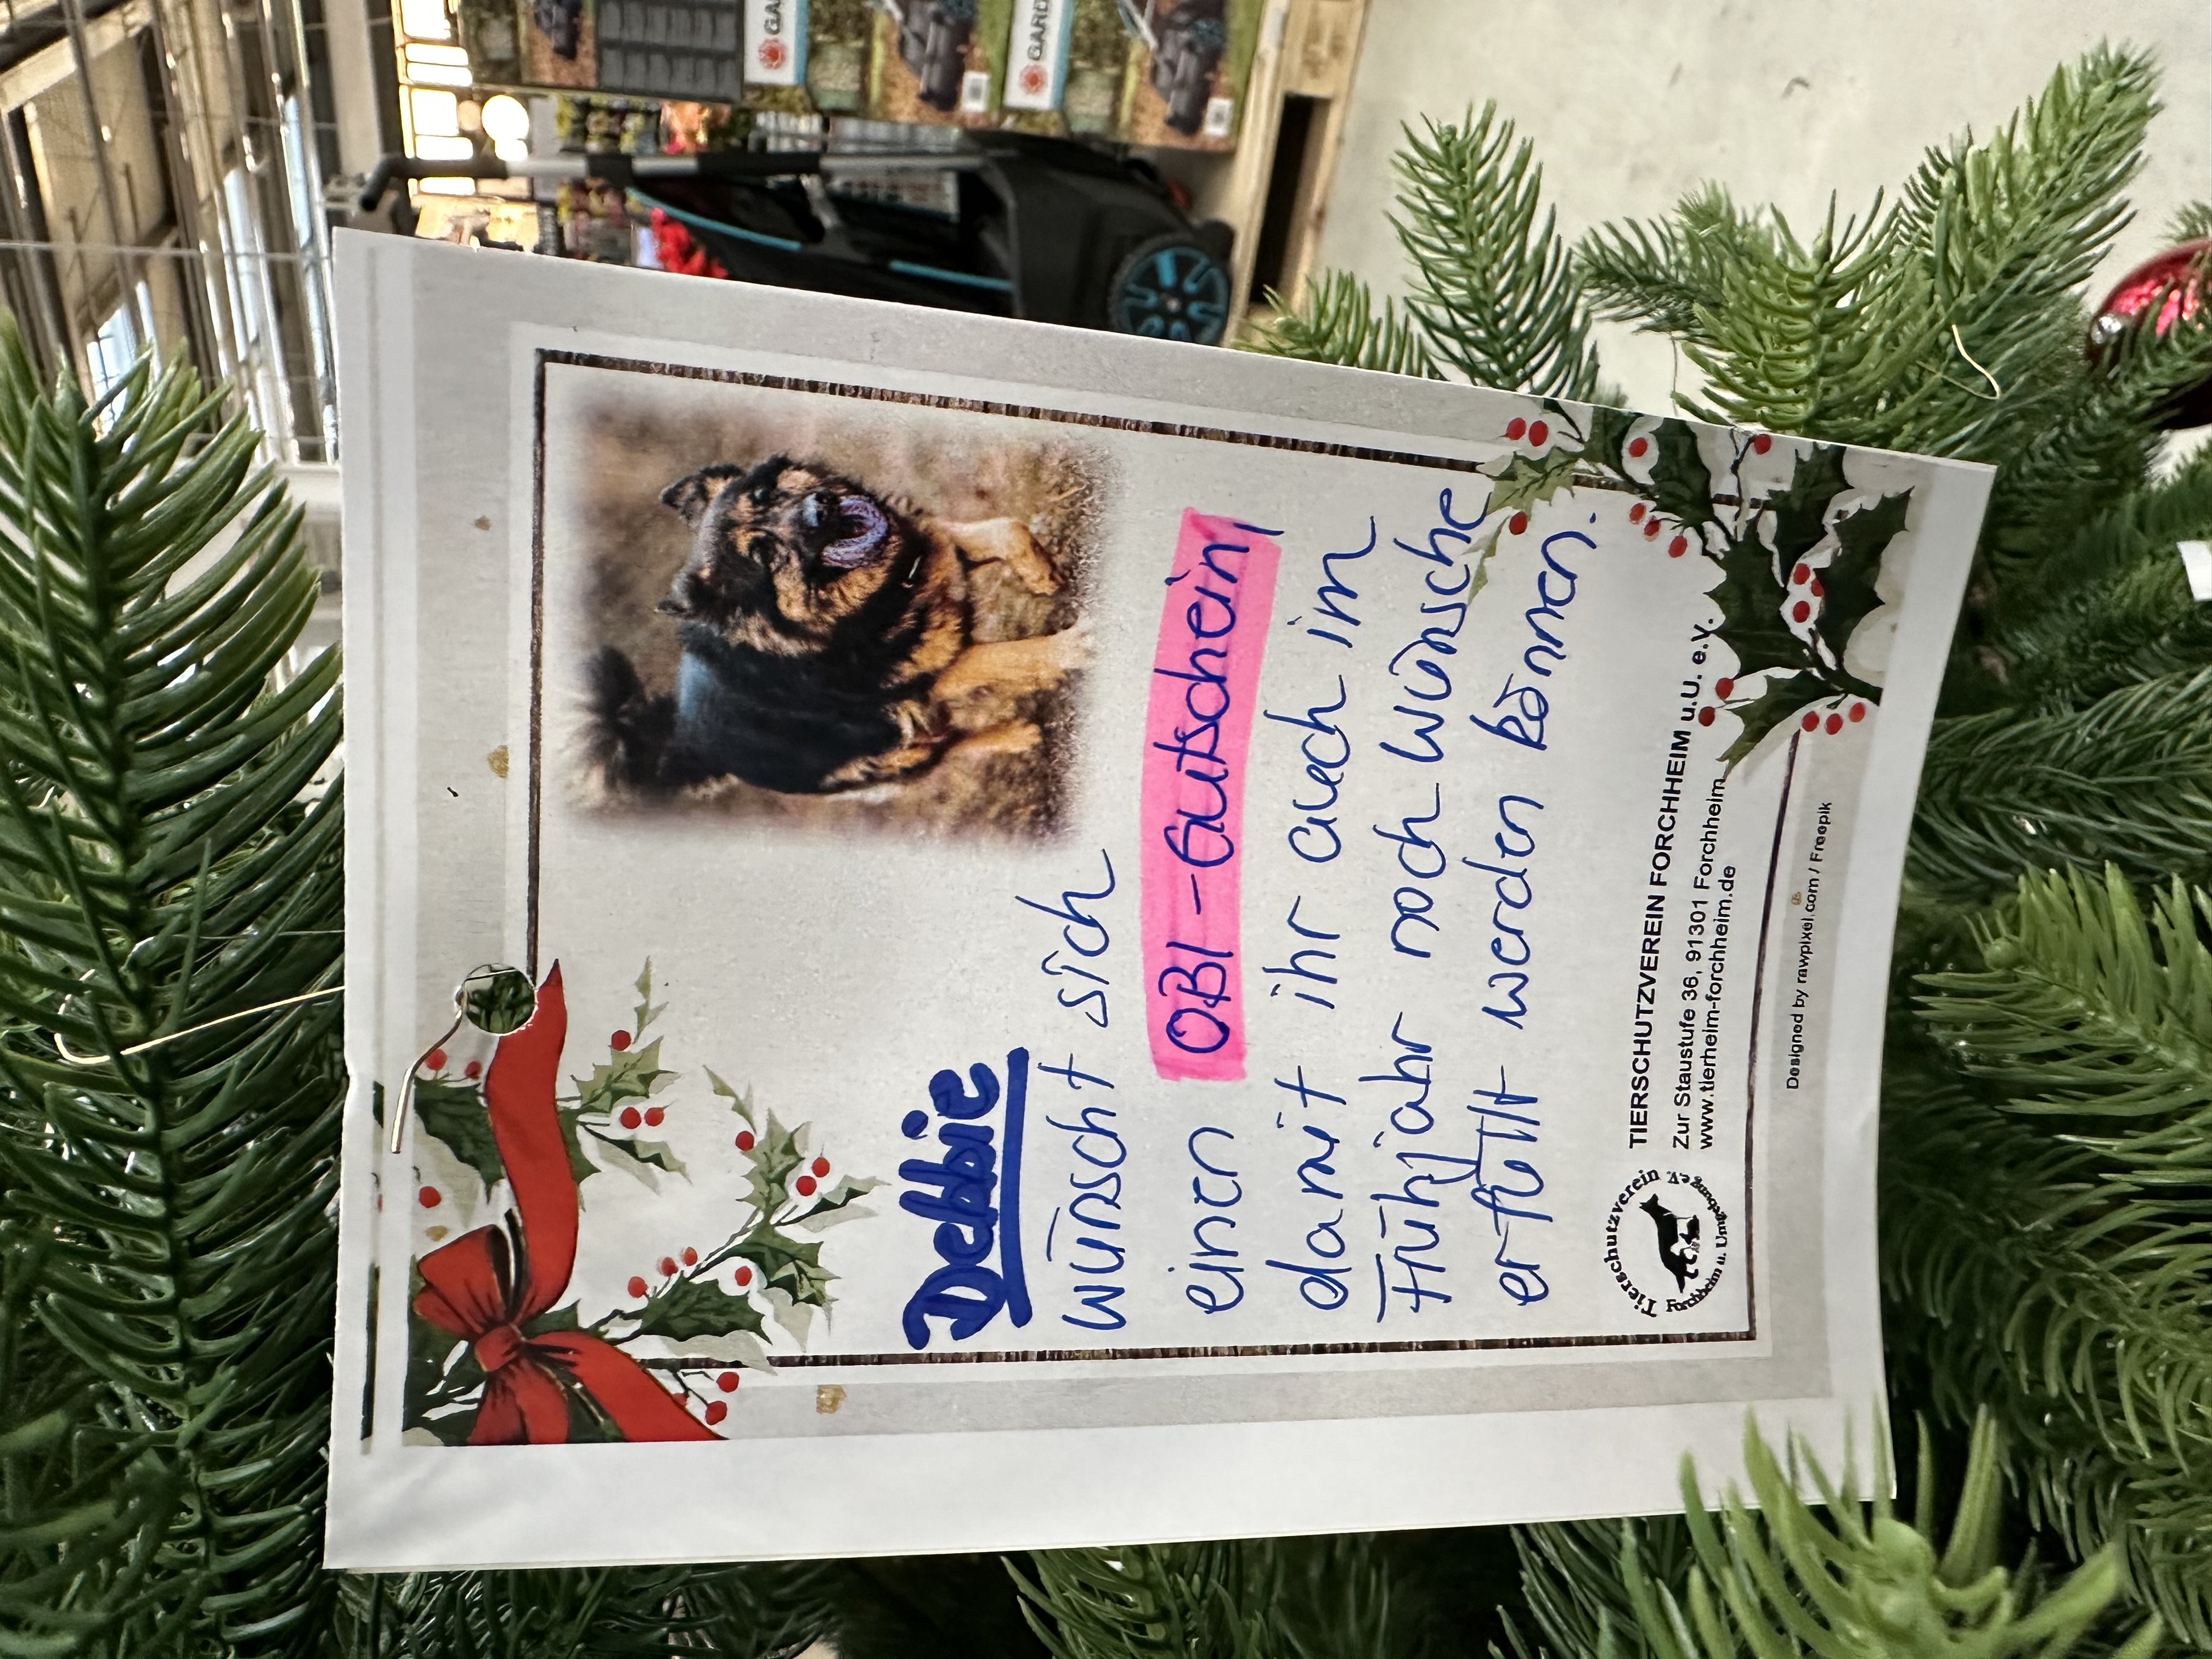 Debbie
wünscht sich
einen OBI-Gutschein,
damit ihr auch im
Frühjahr noch Wünsche
erfüllt werden können.
Tierschutzverein
Forchheim u. Umgebung e.V.
TIERSCHUTZVEREIN FORCHHEIM u.U. e.V.
Zur Staustufe 36, 91301 Forchheim
www.tierheim-forchheim.de
Designed by rawpixel.com / Freepik
GA
GARD